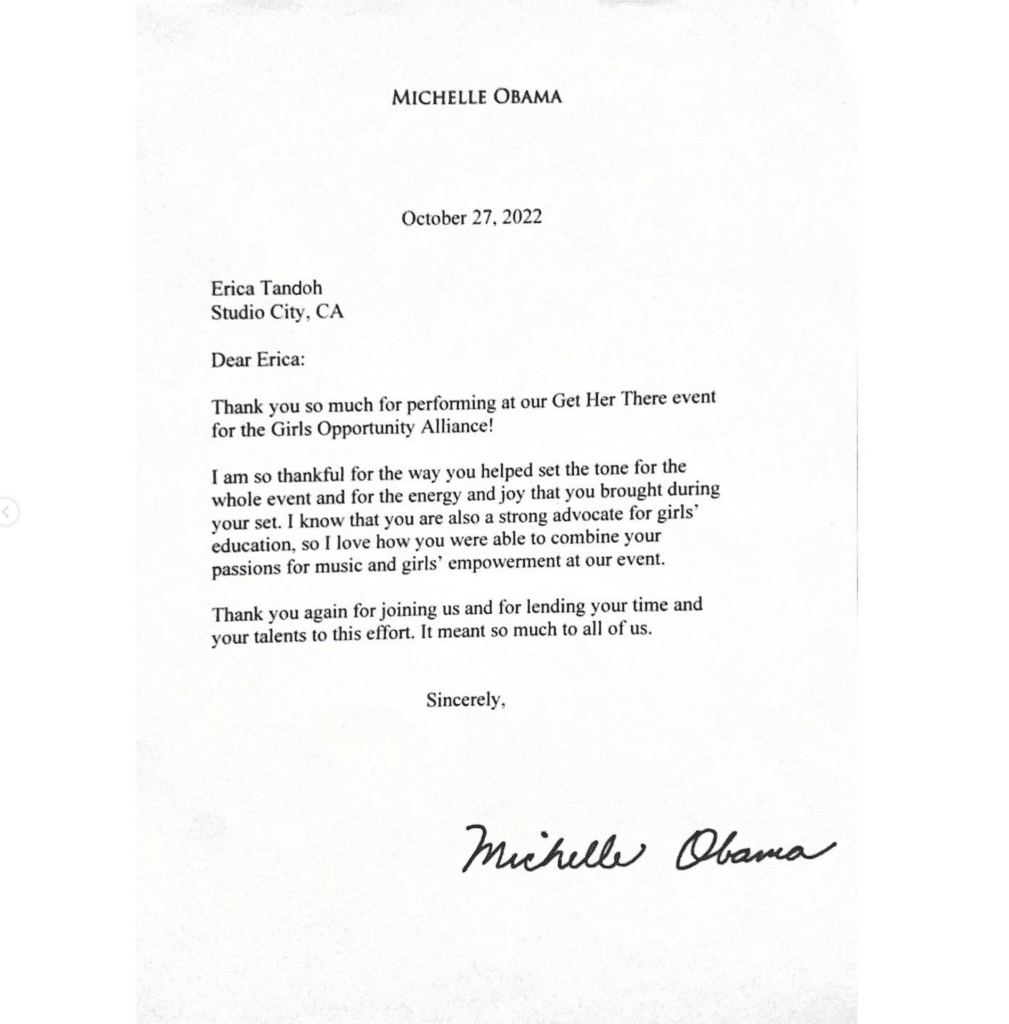 MICHELLE OBAMA
October 27, 2022
Erica Tandoh
Studio City, CA
Dear Erica:
Thank you so much for performing at our Get Her There event
for the Girls Opportunity Alliance!
I am so thankful for the way you helped set the tone for the
whole event and for the energy and joy that you brought during
your set. I know that you are also a strong advocate for girls’
education, so I love how you were able to combine your
passions for music and girls’ empowerment at our event.
Thank you again for joining us and for lending your time and
your talents to this effort. It meant so much to all of us.
Sincerely,
Michelle Obama